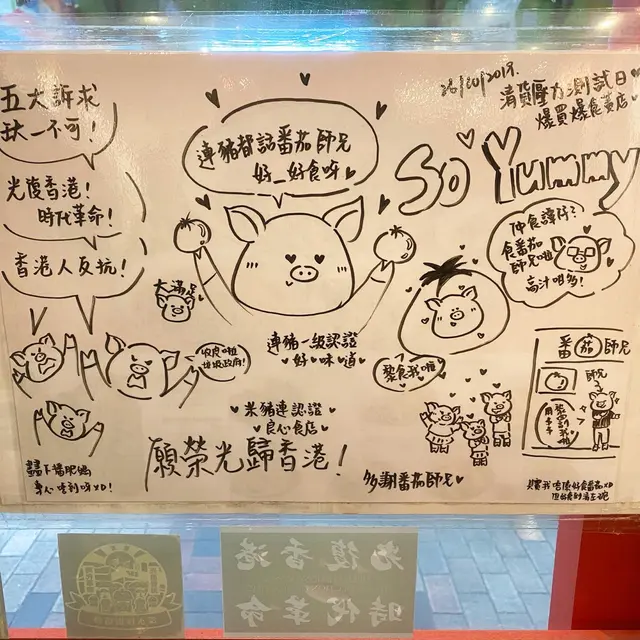 五大訴求
缺一不可！
光復香港！
時代革命！
香港人反抗！
連豬都話番茄師兄
好_好食呀
26/10/2019.
消費壓力測試日
爆買爆食黃店
So Yummy
仲食譚仔？
食番茄
師兄啦
高汁咁多！
大滿足
連豬一級認證
好味道
收皮啦
垃圾政府！
黎食我啦
米豬連認證
良心食店
願榮光歸香港！
多謝番茄師兄
番茄師兄
師兄
畫下豬肥媽
身心
其實我唔係好食番茄XD
光復香港
時代革命